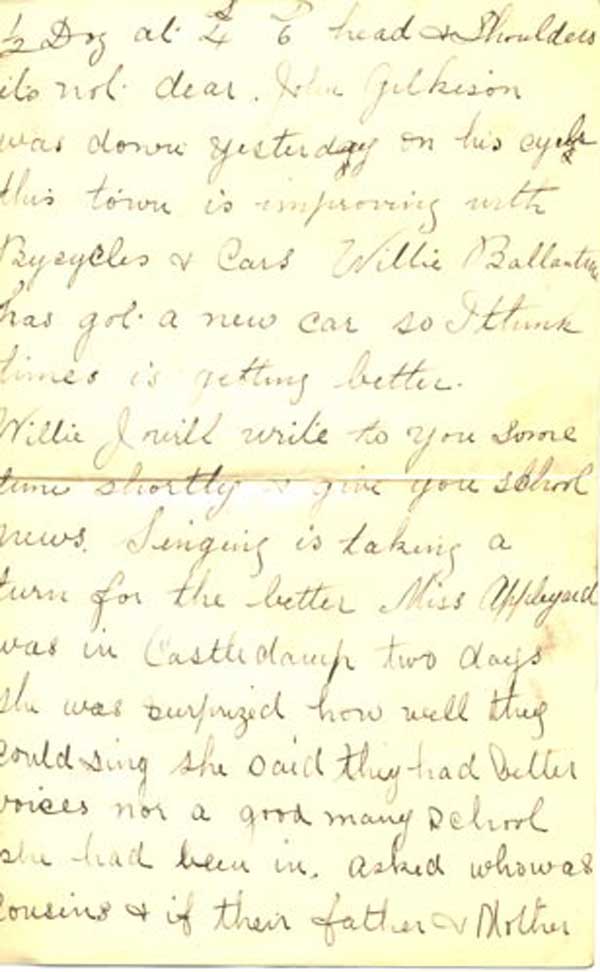 ½ Doz at 4 6 head & Shoulders
its not dear. John Gilkison
was down yesterday on his cycle
this town is improving with
Bycycles & Cars Willie Ballantine
has got a new car so I think
times is getting better.
Willie I will write to you some
time shortly & give you school
news. Singing is taking a
turn for the better Miss Appleyard
was in Castledamph two days
she was surprized how well they
could sing she said they had better
voices nor a good many school
she had been in. asked who was
cousins & if their father & Mother